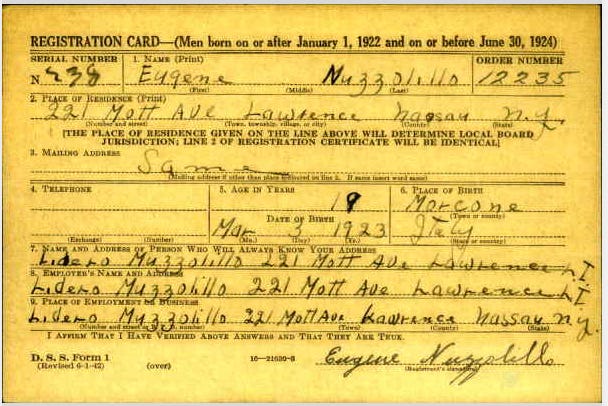 REGISTRATION CARD—(Men born on or after January 1, 1922 and on or before June 30, 1924)
SERIAL NUMBER 1. NAME (Print) ORDER NUMBER
N. 238 Eugene Nuzzolillo 12235
(First) (Middle) (Last)
2. PLACE OF RESIDENCE (Print)
221 Mott Ave Lawrence Nassau N.Y.
(Number and street) (Town, township, village, or city) (County) (State)
[THE PLACE OF RESIDENCE GIVEN ON THE LINE ABOVE WILL DETERMINE LOCAL BOARD
JURISDICTION; LINE 2 OF REGISTRATION CERTIFICATE WILL BE IDENTICAL]
3. MAILING ADDRESS
Same
[Mailing address if other than place indicated on line 2. If same insert word same]
4. TELEPHONE 5. AGE IN YEARS 6. PLACE OF BIRTH
19 Morcone
DATE OF BIRTH (Town or county)
Mar 3 1923 Italy
(Exchange) (Number) (Mo.) (Day) (Yr.) (State or country)
7. NAME AND ADDRESS OF PERSON WHO WILL ALWAYS KNOW YOUR ADDRESS
Lidero Nuzzolillo 221 Mott Ave Lawrence L I
8. EMPLOYER'S NAME AND ADDRESS
Lidero Nuzzolillo 221 Mott Ave Lawrence L I
9. PLACE OF EMPLOYMENT OR BUSINESS
Lidero Nuzzolillo 221 Mott Ave Lawrence Nassau N.Y.
(Number and street or R. F. D. number) (Town) (County) (State)
I AFFIRM THAT I HAVE VERIFIED ABOVE ANSWERS AND THAT THEY ARE TRUE.
D. S. S. Form 1
(Revised 6-1-42) (over) 16—21630-3 Eugene Nuzzolillo
(Registrant's signature)